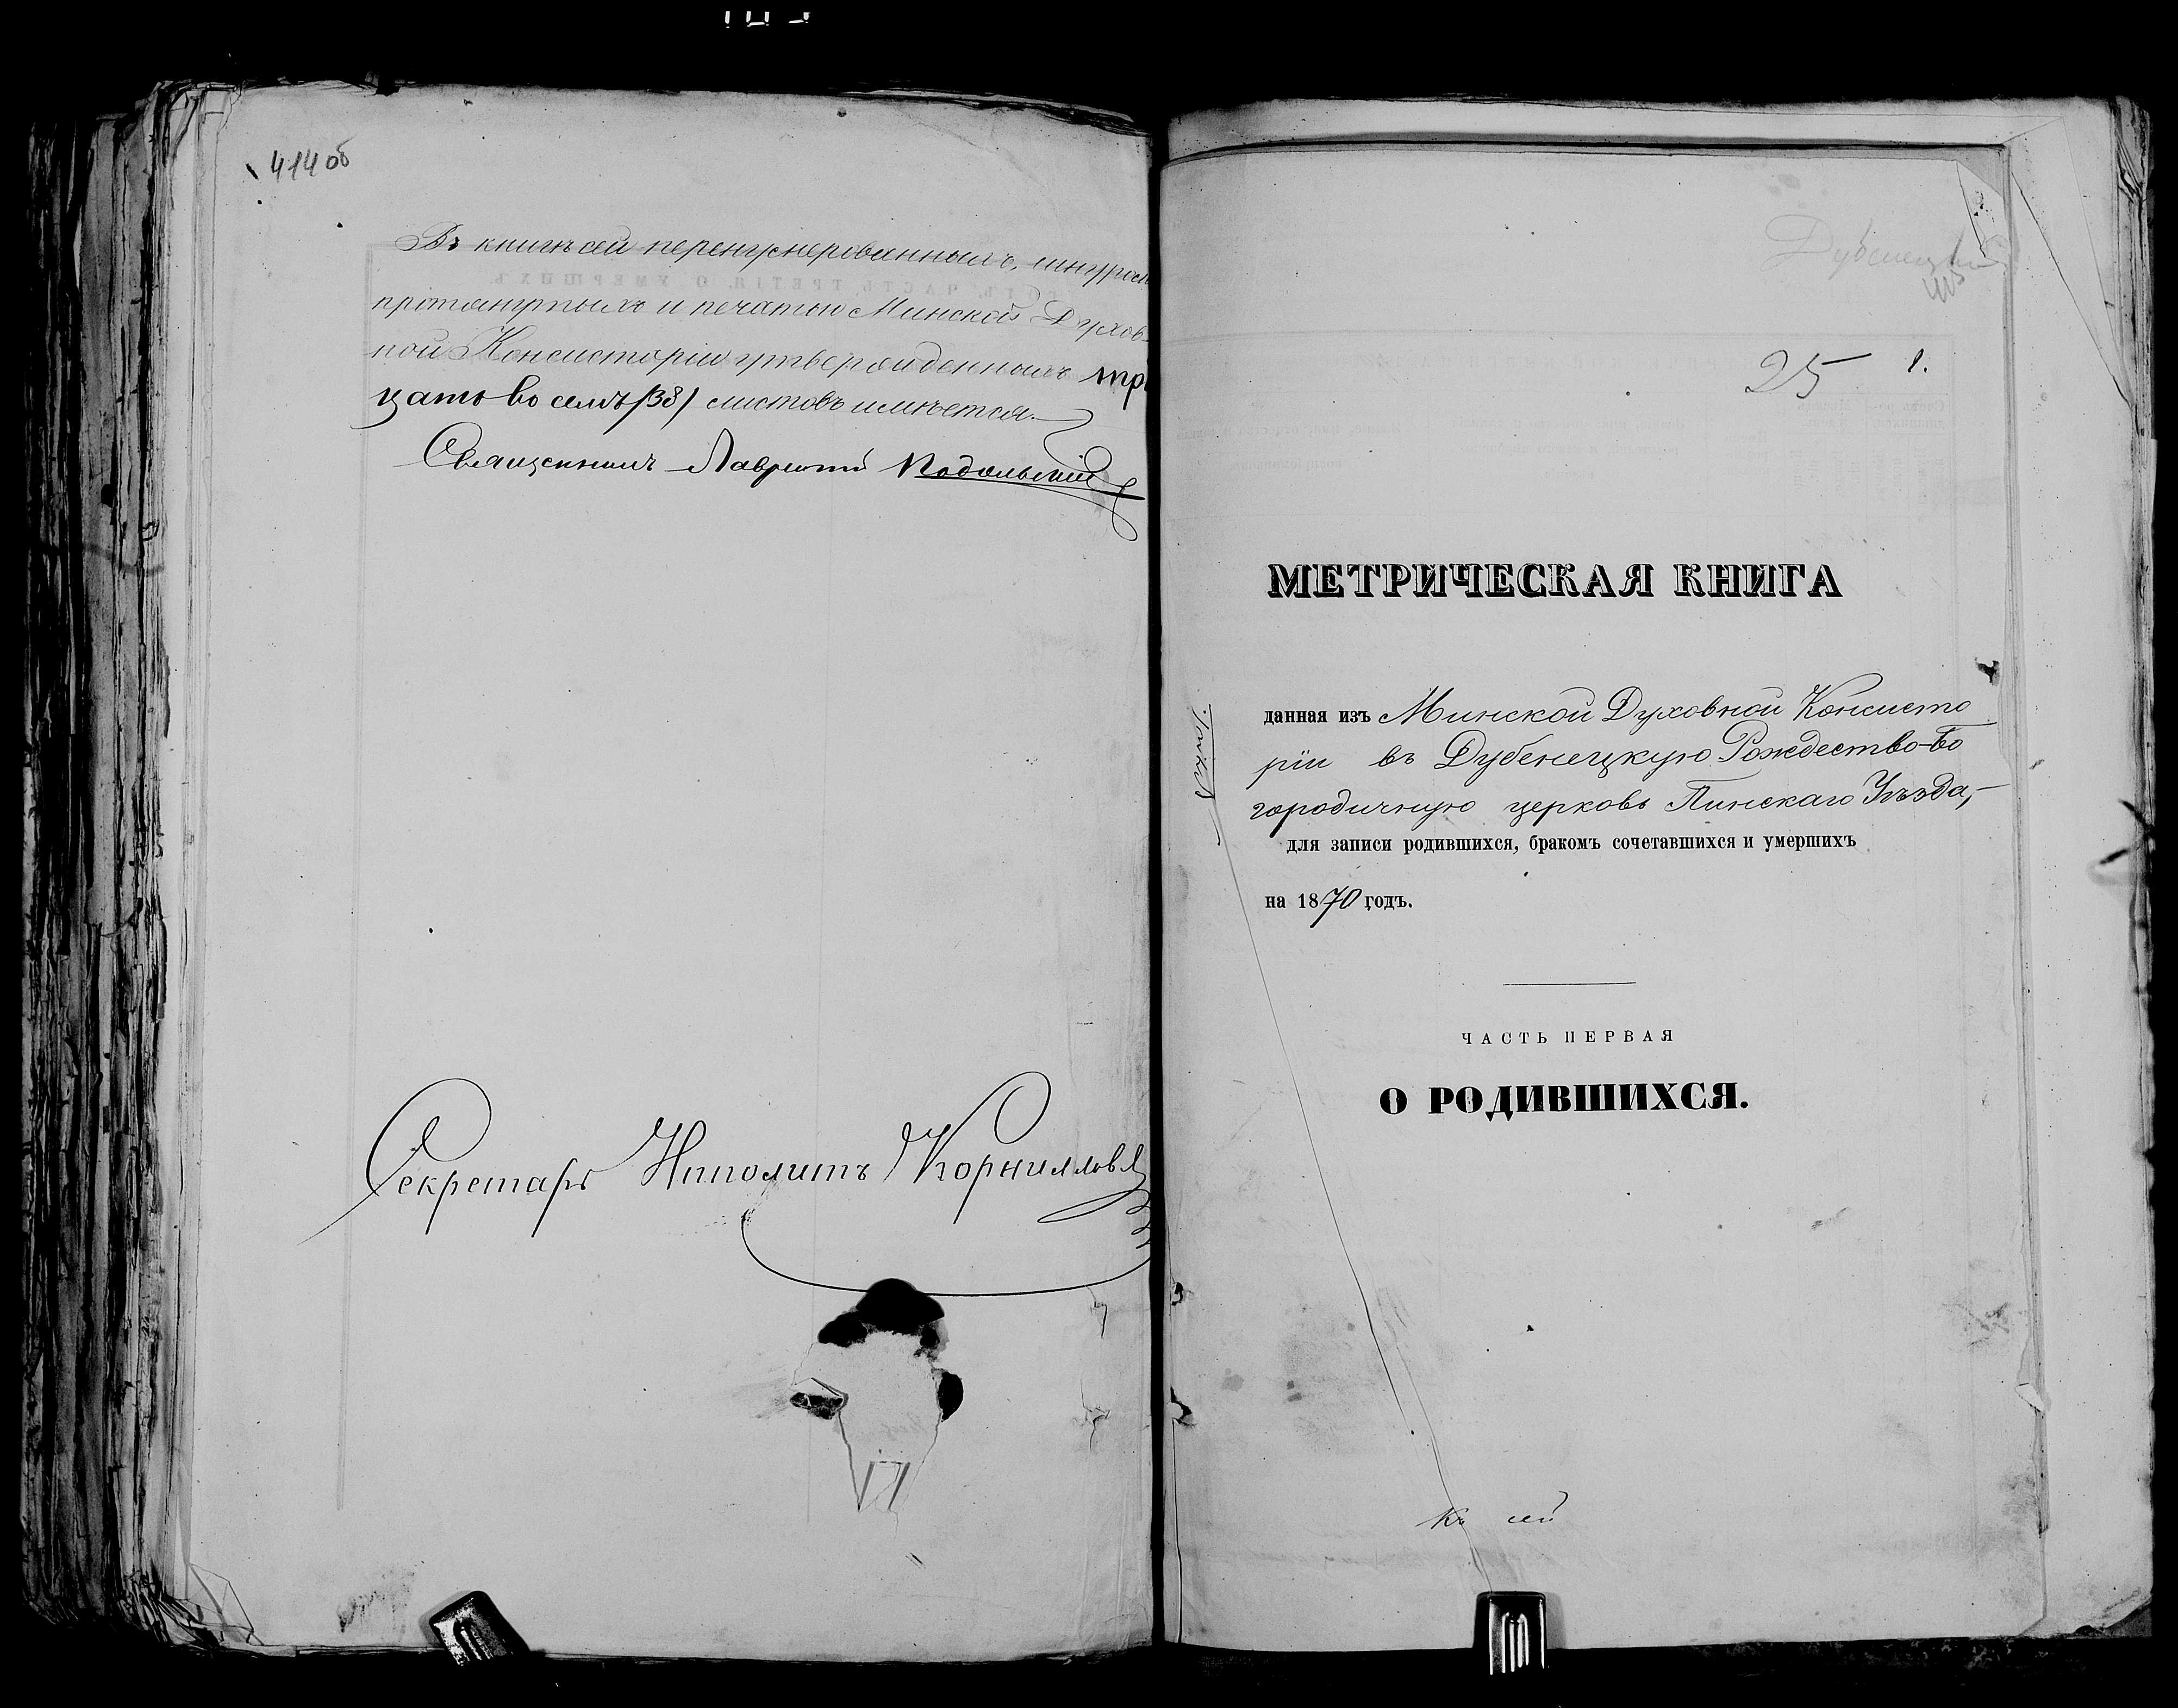 414 об
Въ книгѣ сей перенумерованныхъ, шнуромъ
протянутыхъ и печатью Минской Духов-
ной Консисторіи утвержденныхъ три
цать восемь /38/ листовъ имѣется.
Священникъ Лаврентій Подольскій
Секретарь Ипполитъ Корниллов
Дубенецкой
415
25 1.
МЕТРИЧЕСКАЯ КНИГА
данная изъ Минской Духовной Консисто
ріи въ Дубенецкую Рождество-Бо
городичную церковь Пинскаго Уѣзда,-
для записи родившихся, бракомъ сочетавшихся и умершихъ
на 1870 годъ.
ЧАСТЬ ПЕРВАЯ
О РОДИВШИХСЯ.
Къ сей